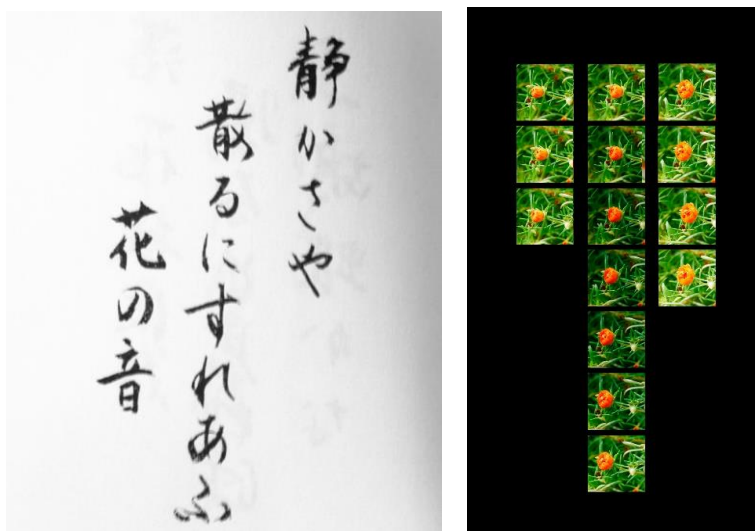 静かさや
散るにすれあふ
花の音